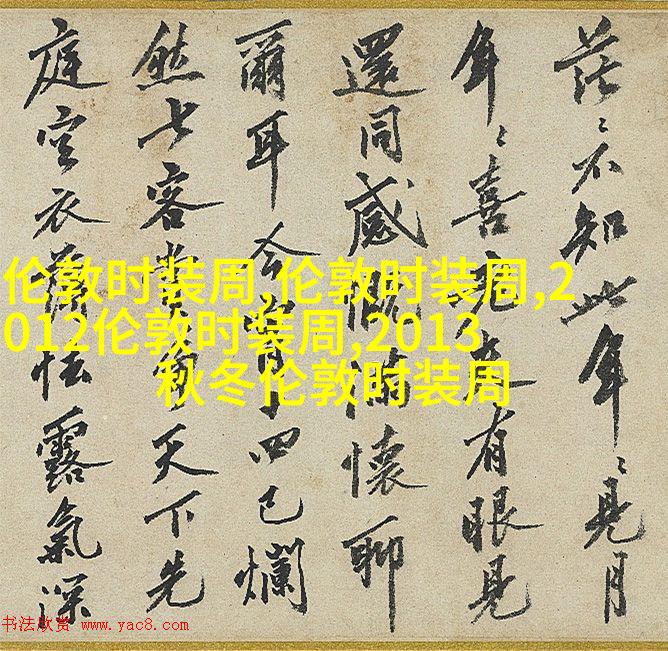 茫々不知此年々見月
年々喜見在有眼見
還同感慨滿懷聊
爾耳今四已爛
然七客天下先
庭空衣薄怯露氣深
伦敦时装周,伦敦时装周,2
012伦敦时装周,2013
秋冬伦敦时装周
书法欣赏 www.yac8.com